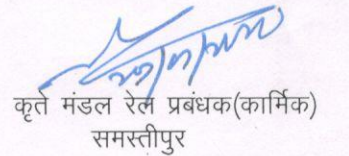 कृते मंडल रेल प्रबंधक(कार्मिक)
समस्तीपुर